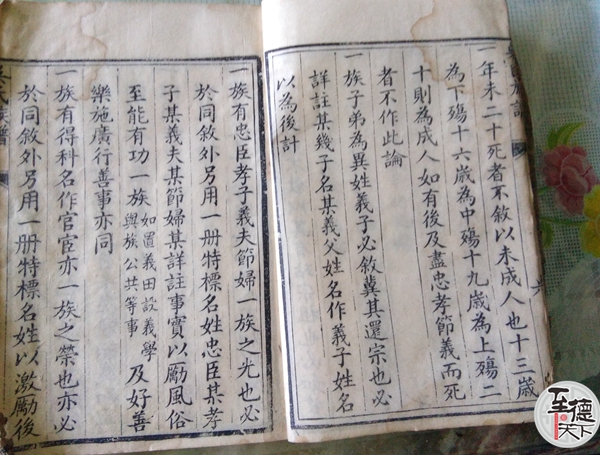 一年未二十死者不敘以未成人也十三歲
為下殤十六歲為中殤十九歲為上殤二
十則為成人如有後及盡忠孝節義而死
者不作此論
一族子弟為異姓義子必敘冀其還宗也必
詳註某幾子名某義父姓名作義子姓名
以為後計
一族有忠臣孝子義夫節婦一族之光也必
於同敘外另用一册特標名姓忠臣某孝
子某義夫某節婦某詳註事實以勵風俗
至能有功一族如置義田設義學與族公共等事及好善
樂施廣行善事亦同
一族有得科名作官宦亦一族之榮也亦必
於同敘外另用一册特標名姓以激勵後
氏族譜
族譜
六
至德天下